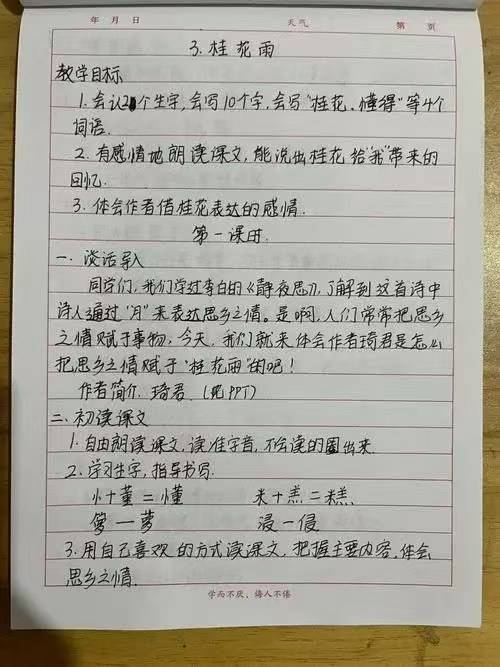 年 月 日 天气 第 页
3.桂花雨
教学目标
1.会认2个生字,会写10个字,会写"桂花、懂得"等4个
词语.
2.有感情地朗读课文,能说出桂花给"我"带来的
回忆.
3.体会作者借桂花表达的感情.
第一课时.
一.谈话导入
同学们,我们学过李白的《静夜思》,了解到这首诗中
诗人通过"月"来表达思乡之情。是啊,人们常常把思乡
之情赋于事物,今天,我们就来体会作者琦君是怎么
把思乡之情赋于"桂花雨"的吧!
作者简介.琦君.(见PPT)
二.初读课文
1.自由朗读课文,读准字音,不会读的圈出来.
2.学习生字,指导书写.
忄+董=懂 米+羔=糕.
箩—萝 浸—侵
3.用自己喜欢的方式读课文,把握主要内容,体会
思乡之情.
学而不厌,诲人不倦